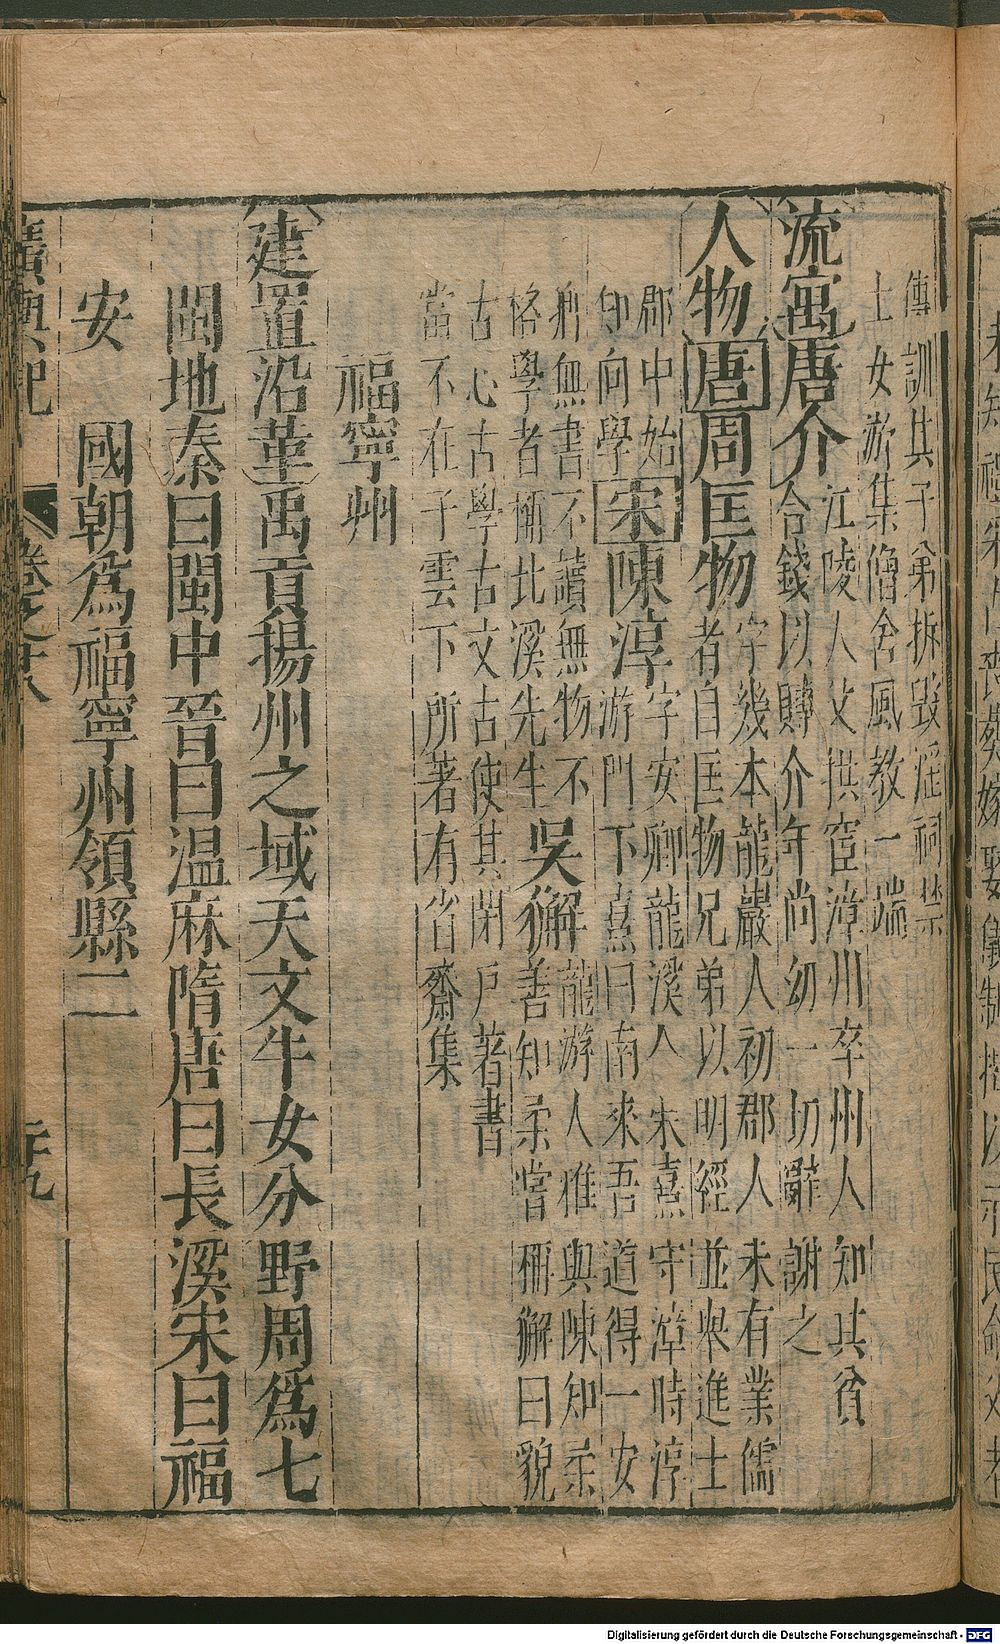 傳訓其子弟拆毀淫祠禁
士女游集僧舍風教一端
流寓唐介江陵人父拱宦漳州卒州人知其貧
合錢以賻介年尚幼一切辭謝之
人物唐周匡物字幾本龍巖人初郡人未有業儒
者自匡物兄弟以明經並舉進士
郡中始
印向學宋陳淳字安卿龍溪人朱熹守漳時淳
游門下熹曰南來吾道得一安
卿無書不讀無物不
格學者稱北溪先生吳獬龍游人雅與陳知柔
善知柔嘗稱獬曰貌
古心古學古文古使其閉戶著書
當不在子雲下所著有省齋集
福寧州
建置沿革禹貢揚州之域天文牛女分野周爲七
閩地秦曰閩中晉曰温麻隋唐曰長溪宋曰福
安 國朝爲福寧州領縣二
廣輿記 卷之十八
Digitalisierung gefördert durch die Deutsche Forschungsgemeinschaft - DFG